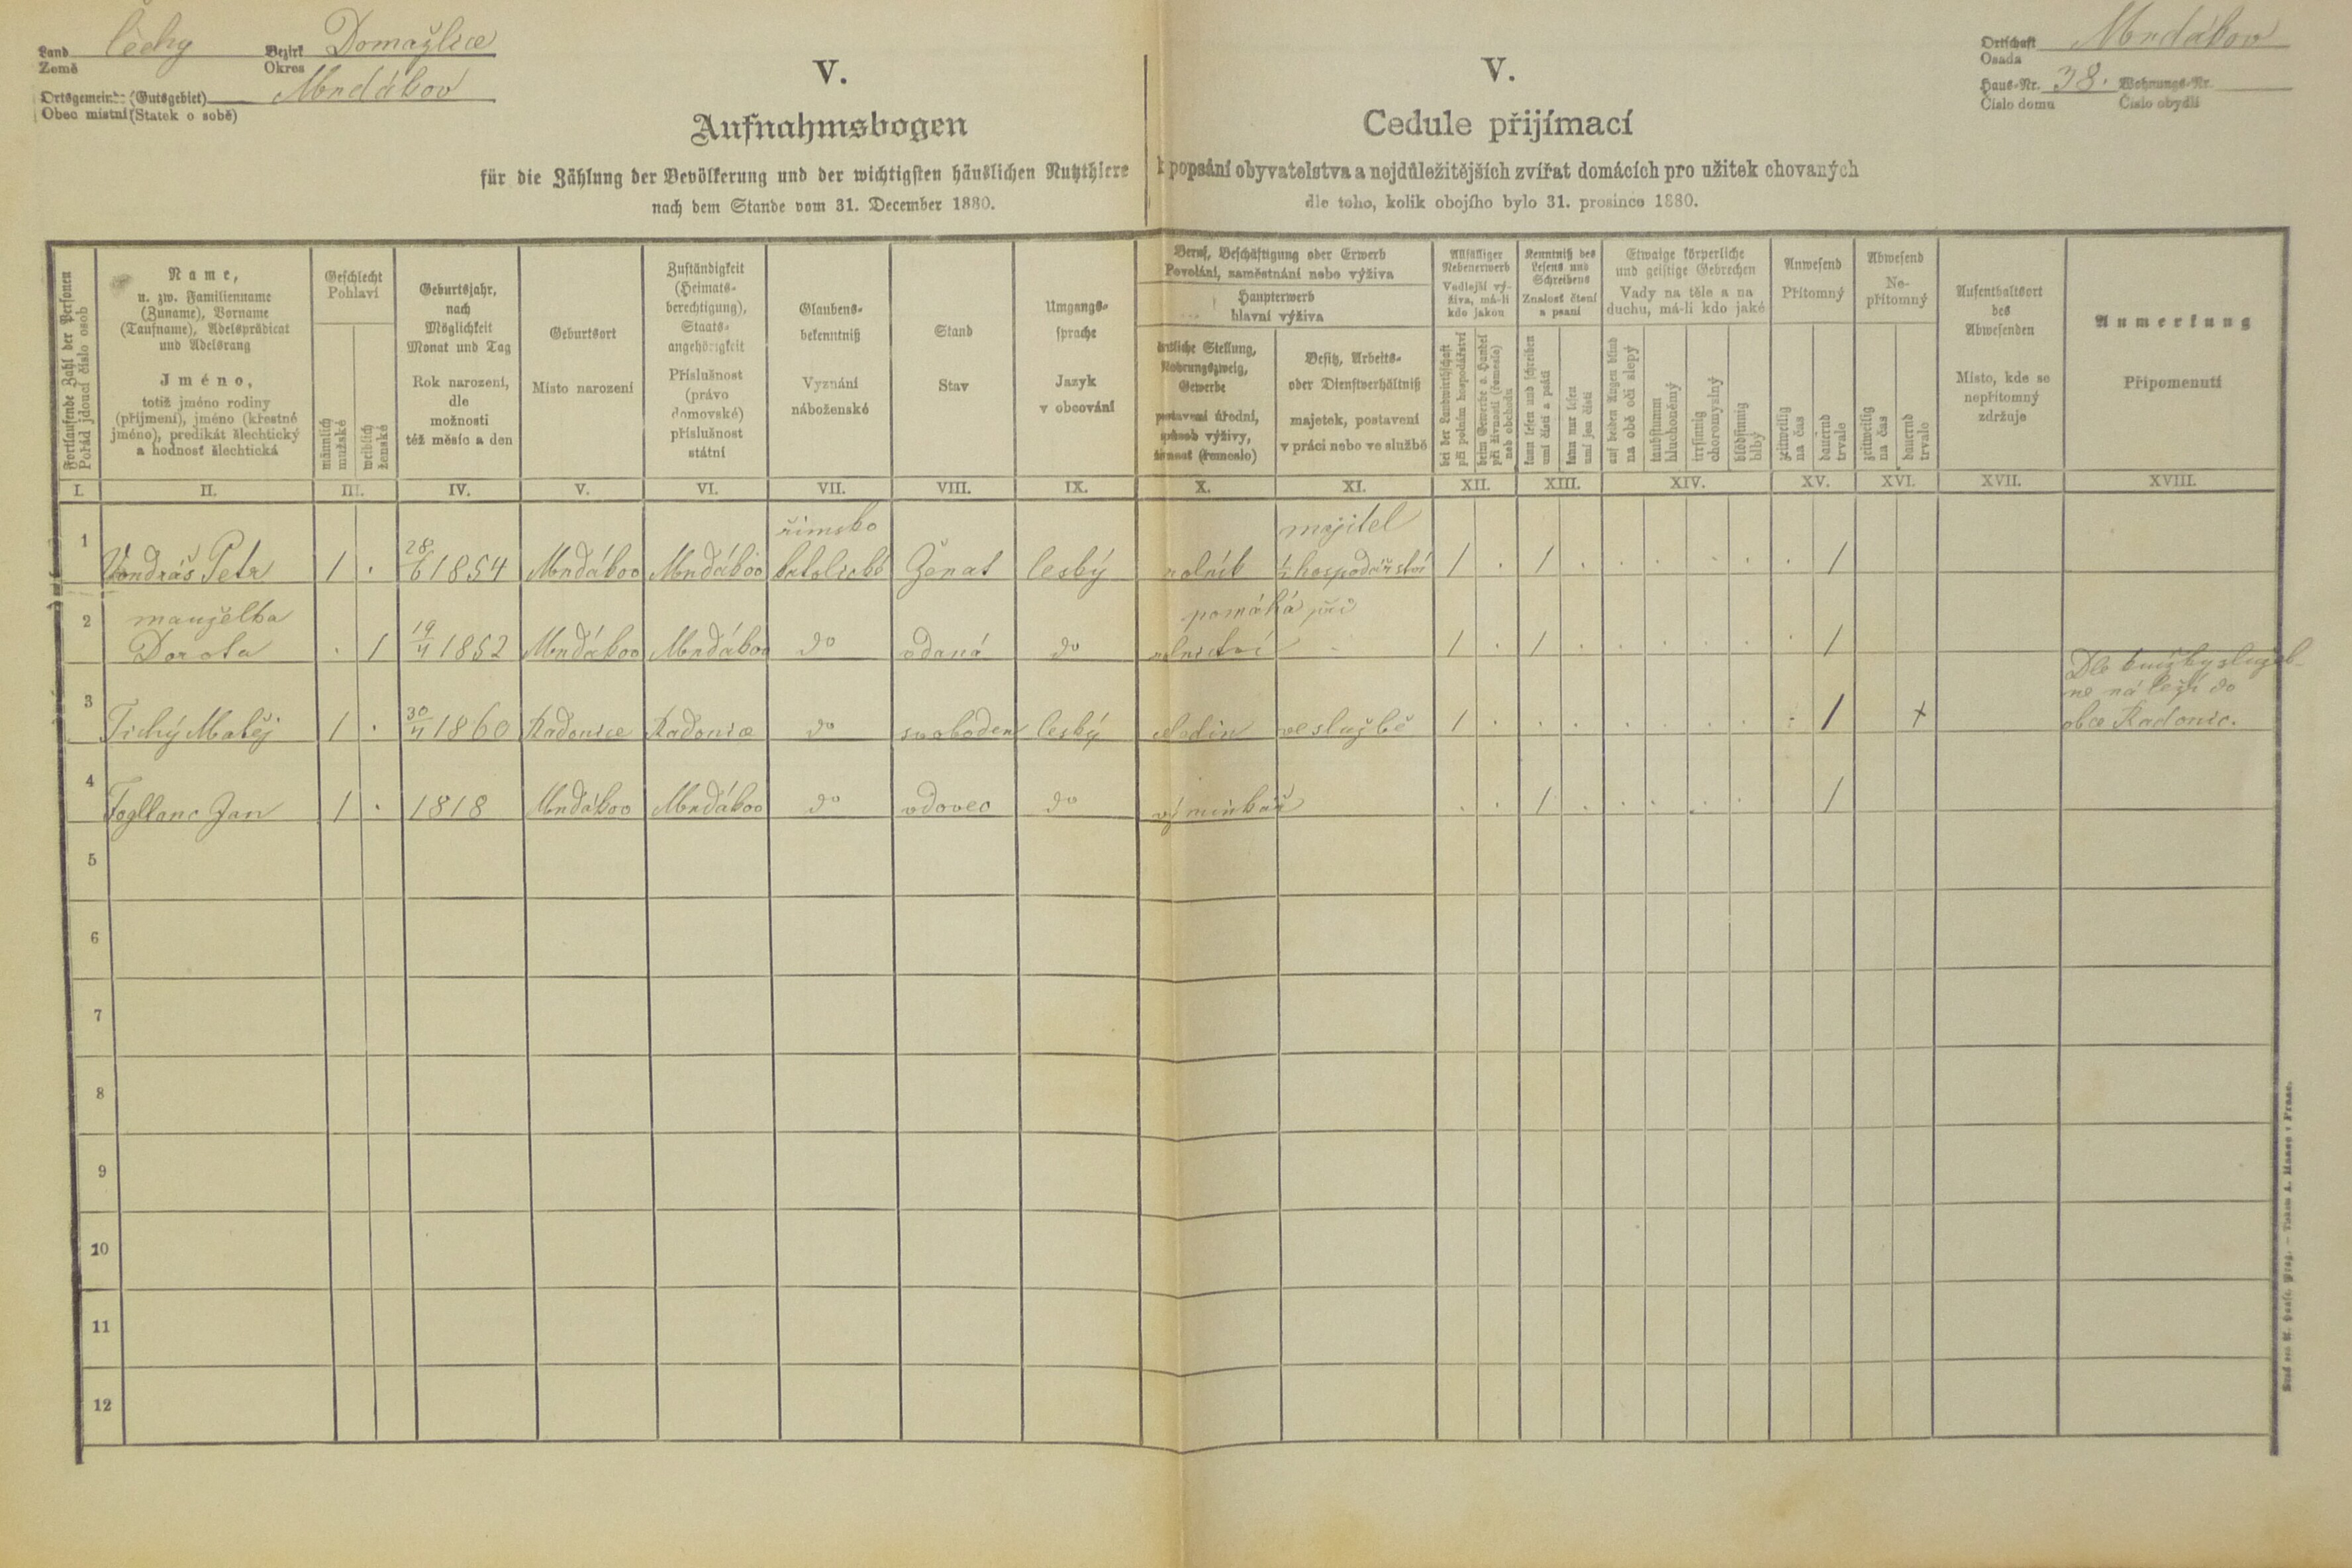 Land Čechy Bezirk Domažlice
Země Okres
Ortsgemeinde (Gutsgebiet) Mrdákov
Obec místní (Statek o sobě)
V.
Aufnahmsbogen
für die Zählung der Bevölkerung und der wichtigsten häuslichen Nutzthiere
nach dem Stande vom 31. December 1880.
V.
Cedule přijímací
k popsání obyvatelstva a nejdůležitějších zvířat domácích pro užitek chovaných
dle toho, kolik obojího bylo 31. prosince 1880.
Ortschaft Mrdákov
Osada
Haus-Nr. 38. Wohnungs-Nr.
Číslo domu Číslo obydlí
Fortlaufende Zahl der Personen
Pořád jdoucí číslo osob
Name,
u. zw. Familienname
(Zuname), Vorname
(Taufname), Adelsprädicat
und Adelsrang
Jméno,
totiž jméno rodiny
(příjmení), jméno (křestné
jméno), predikát šlechtický
a hodnost šlechtická
Geschlecht
Pohlaví
männlich
mužské
weiblich
ženské
Geburtsjahr,
nach
Möglichkeit
Monat und Tag
Rok narození,
dle
možnosti
též měsíc a den
Geburtsort
Místo narození
Zuständigkeit
(Heimats-
berechtigung),
Staats-
angehörigkeit
Příslušnost
(právo
domovské)
příslušnost
státní
Glaubens-
bekenntniß
Vyznání
náboženské
Stand
Stav
Umgangs-
sprache
Jazyk
v obcování
Beruf, Beschäftigung oder Erwerb
Povolání, zaměstnání nebo výživa
Haupterwerb
hlavní výživa
ämtliche Stellung,
Nahrungszweig,
Gewerbe
postavení úřední,
způsob výživy,
živnost (řemeslo)
Besitz, Arbeits-
oder Dienstverhältniß
majetek, postavení
v práci nebo ve službě
Allfälliger
Nebenerwerb
Vedlejší vý-
živa, má-li
kdo jakou
bei der Landwirthschaft
při polním hospodářství
beim Gewerbe o. Handel
při živnosti (řemesle)
neb obchodu
Kenntniß des
Lesens und
Schreibens
Znalost čtení
a psaní
kann lesen und schreiben
umí čísti a psáti
kann nur lesen
umí jen čísti
Etwaige körperliche
und geistige Gebrechen
Vady na těle a na
duchu, má-li kdo jaké
auf beiden Augen blind
na obě oči slepý
taubstumm
hluchoněmý
irrsinnig
choromyslný
blödsinnig
blbý
Anwesend
Přítomný
zeitweilig
na čas
dauernd
trvale
Abwesend
Ne-
přítomný
zeitweilig
na čas
dauernd
trvale
Aufenthaltsort
des
Abwesenden
Místo, kde se
nepřítomný
zdržuje
Anmerkung
Připomenutí
I. II. III. IV. V. VI. VII. VIII. IX. X. XI. XII. XIII. XIV. XV. XVI. XVII. XVIII.
římsko majitel
1 Vondráš Petr 1 . 28/6 1854 Mrdákov Mrdákov katolické Ženat český rolník ½ hospodářství 1 . 1 . . . . . . 1
manželka pomáhá při
2 Dorota . 1 19/4 1852 Mrdákov Mrdákov do vdaná do rolnictví - 1 . 1 . . . . . . 1
Dle knížky služeb-
ne náleží do
3 Tichý Matěj 1 . 30/4 1860 Radonice Radonice do svoboden český čeledín ve službě 1 . . . . . . . : 1 + obce Radonic.
4 Foglanc Jan 1 . 1818 Mrdákov Mrdákov do vdovec do výminkář . . 1 . . . . . 1
5
6
7
8
9
10
11
12